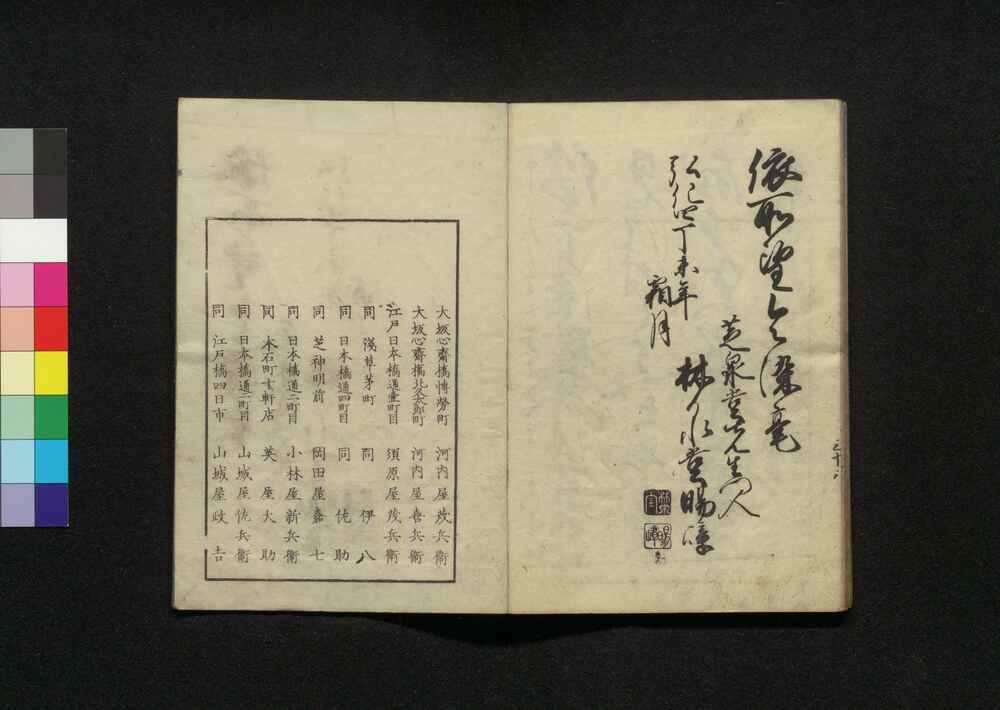 依所望令染毫
芝泉堂先生門人
林泉堂暘峰
弘化四丁未年
霜月
大坂心齋橋博勞町 河内屋茂兵衛
大坂心齋橋北久太郎町 河内屋喜兵衛
江戸日本橋通壹町目 須原屋茂兵衛
同 淺草茅町 同 伊八
同 日本橋通四町目 同 佐助
同 芝神明前 岡田屋嘉七
同 日本橋通二町目 小林屋新兵衛
同 本石町十軒店 英屋大助
同 日本橋通二町目 山城屋佐兵衛
同 江戸橋四日市 山城屋政吉